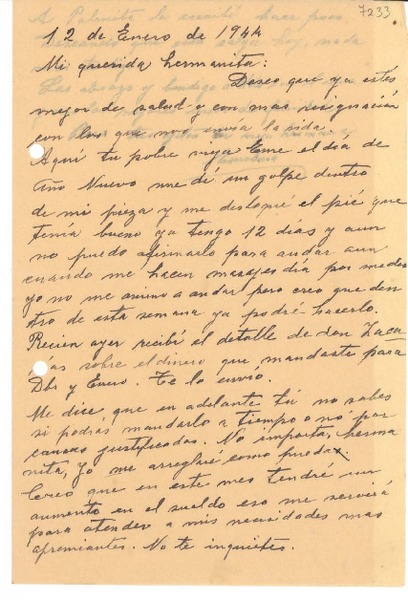 7233
12 de Enero de 1944
Mi querida hermanita:
Deseo que ya estés
mejor de salud y con mas resignación
con lo que nos envía la vida.
Aquí tu pobre vieja Eme el día de
Año Nuevo me dí un golpe dentro
de mi pieza y me disloqué el pié que
tenía bueno ya tengo 12 días y aun
no puedo afirmarlo para andar aun
cuando me hacen masajes dia por medio
yo no me animo a andar pero creo que den
tro de esta semana ya podré hacerlo.
Recien ayer recibí el detalle de don Zaca
ías sobre el dinero que mandaste para
Dbr y Enero. Te lo envío.
Me dice que en adelante tú no sabes
si podrás mandarlo a tiempo o no por
causas justificadas. No importa, herma
nita, yo me arreglaré como pueda.
Creo que en este mes tendré un
aumento en el sueldo eso me servirá
para atender a mis necesidades mas
apremiantes. No te inquietes.